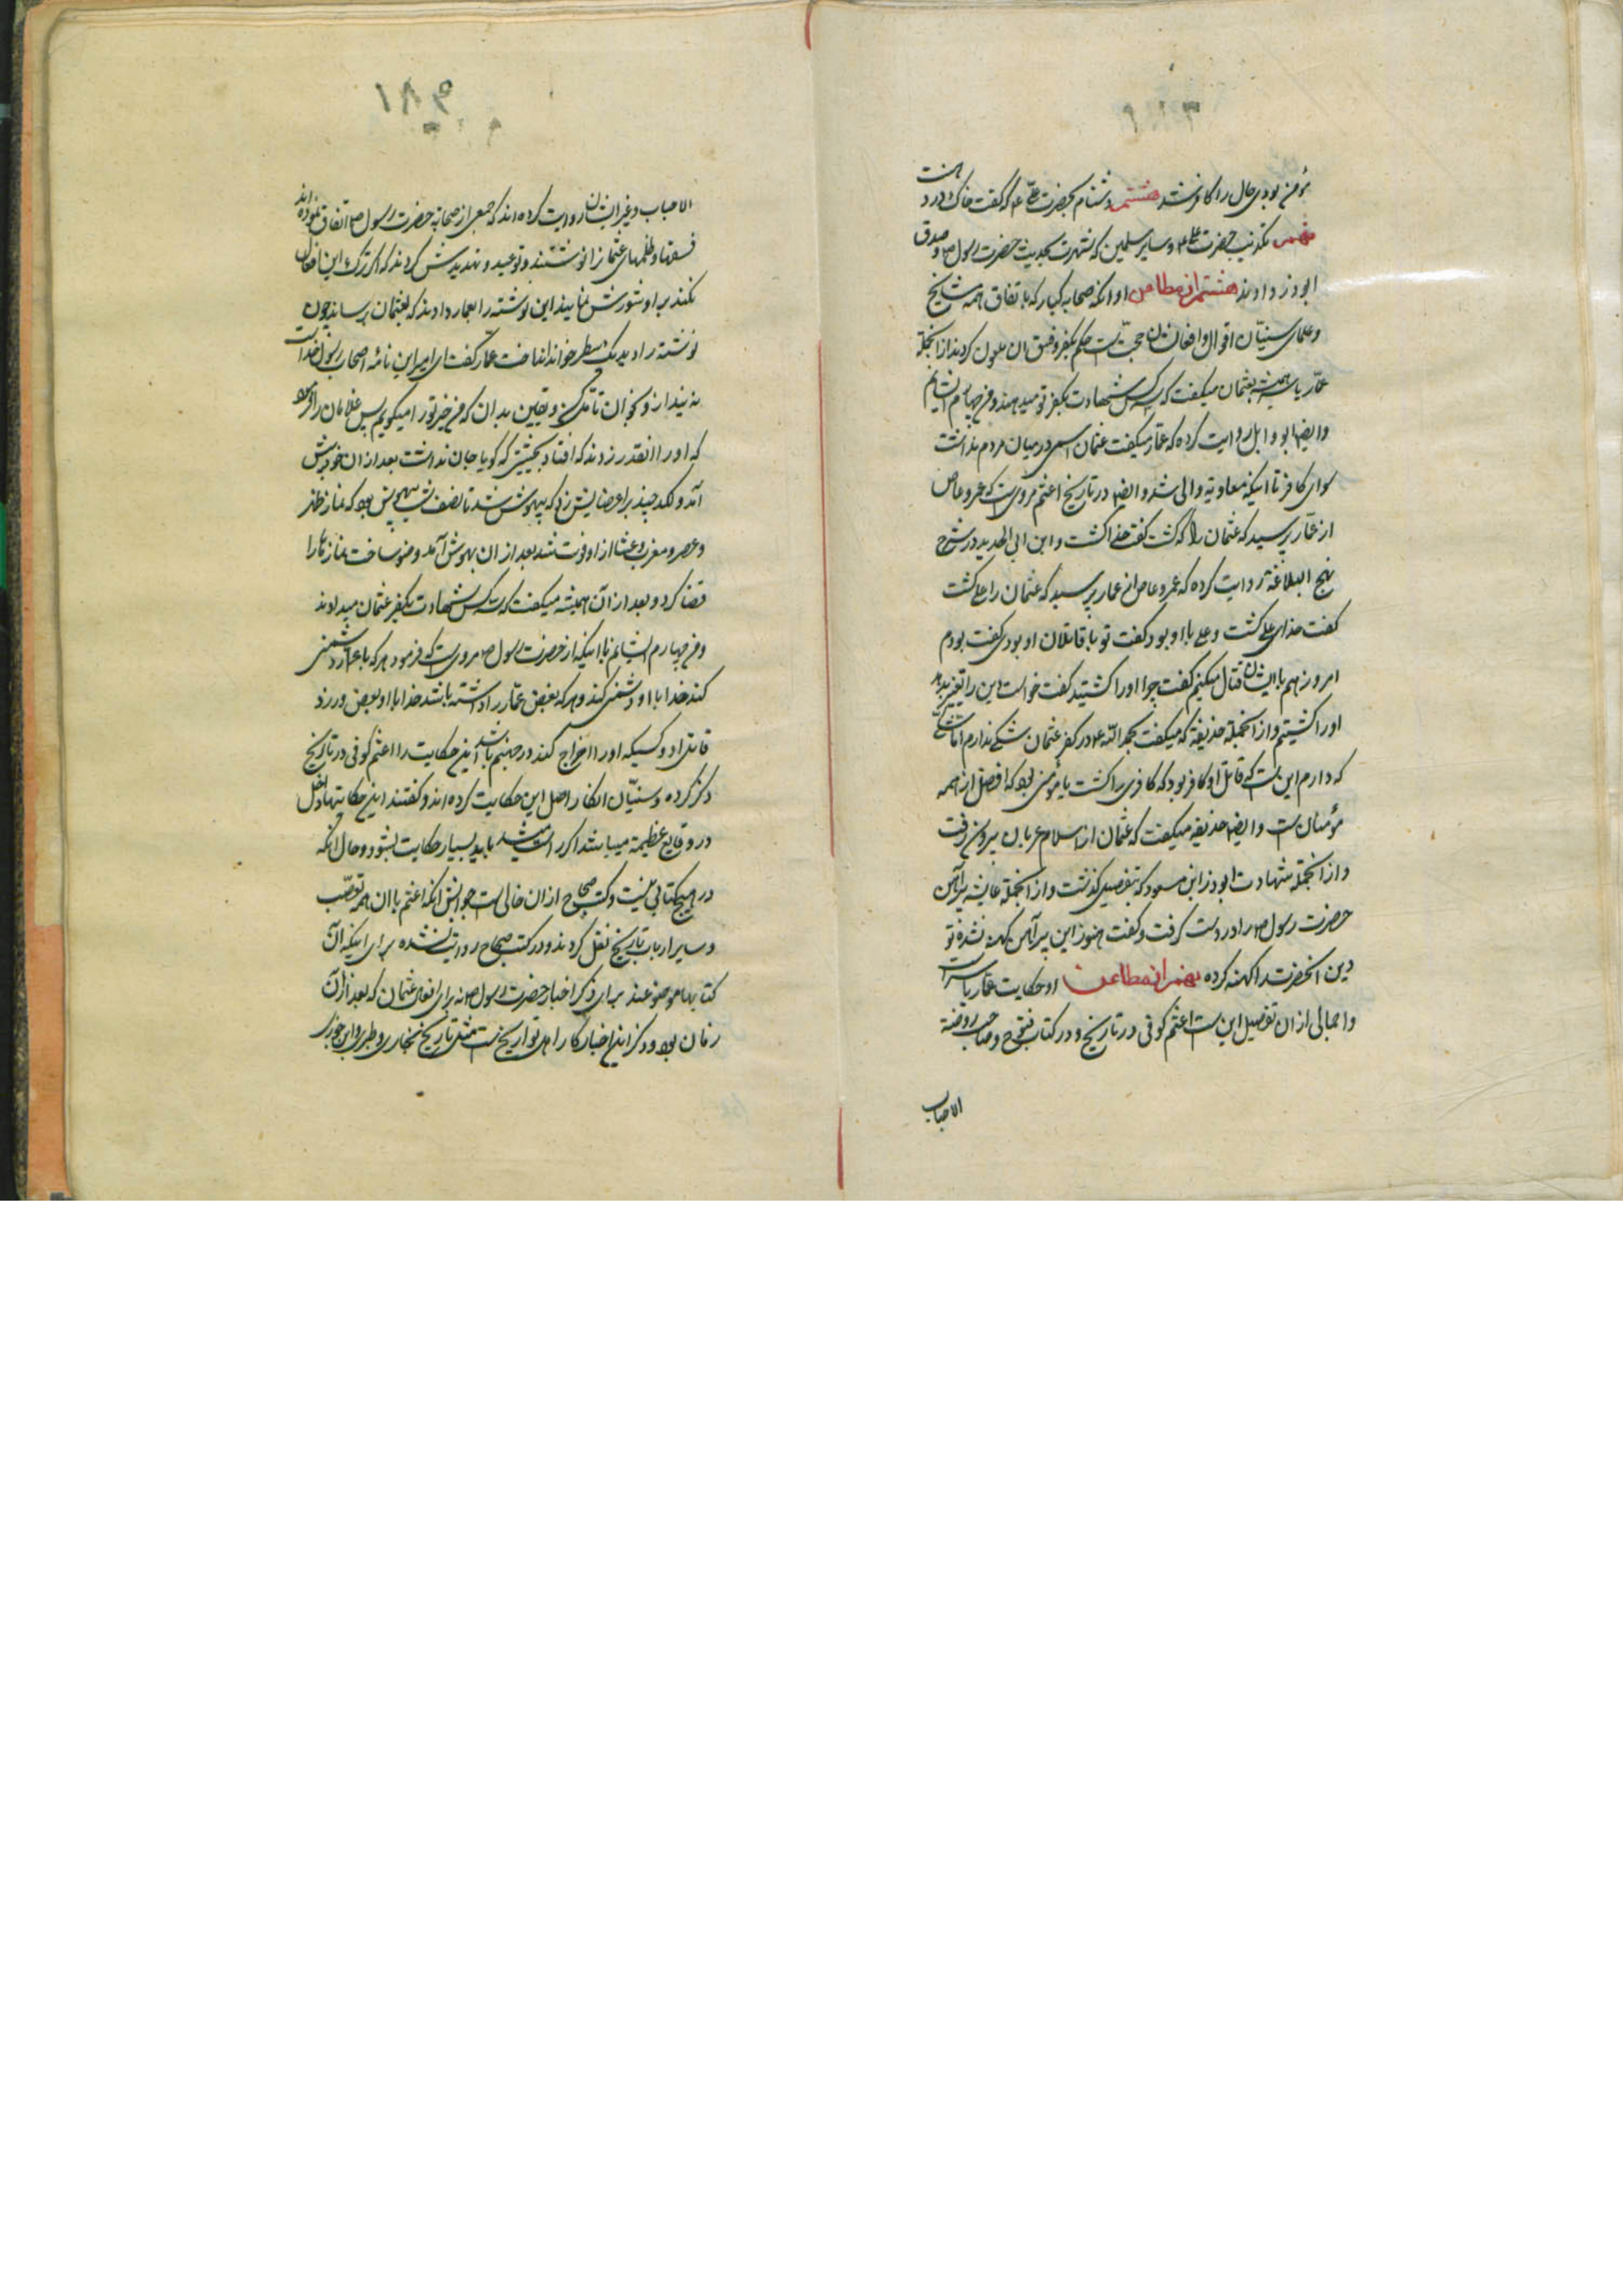 ۱۸۳
مؤمن بودی حال را کافر شد هشتم دشنام بحضرت علی ۴ که گفت خاک در دهنت
نهم تکذیب حضرت علی ۴ و سایر مسلمین که شهرت بحدیث حضرت رسول ص و صدق
ابوذر دادند هشتم از مطاعن او آنکه صحابه کبار که باتفاق همه مشایخ
و علمای سنیّان اقوال و افعال ایشان حجّت است حکم بکفر و فسق ان ملعون کردند از انجمله
عمّار یاسر همیشه بعثمان میگفت که سه کس شهادت بکفر تو میدهند و من چهارم ایشانم
و ایضا ابو وایل روایت کرده که عمّار میگفت عثمان اسمی در میان مردم نداشت
سوای کافر تا اینکه معاویه والی شد و ایضا در تاریخ اعثم مرویست که عمرو عاص
از عمّار پرسید که عثمان را که کشت گفت خدا کشت و ابن ابی الحدید در شرح
نهج البلاغة روایت کرده که عمرو عاص از عمار پرسید که عثمان را علی کشت
گفت خدای علی کشت و علی با او بود گفت تو با قاتلان او بودی گفت بودم
امروز هم با ایشان قتال میکنم گفت چرا او را کشتید گفت خواست دین را تغییر بدهد
او را کشتیم و از انجمله حذیفه که میگفت بحمد اللّه که در کفر عثمان شکّی ندارم امّا شکّی
که دارم این است که قاتل او کافر بود که کافری را کشت یا مؤمنی بود که افضل از همه
مؤمنان است و ایضا حذیفه میگفت که عثمان از اسلام عریان بیرون رفت
و از انجمله شهادت ابوذر ابن مسعود که بتفصیل گذشت و از انجمله عایشه پیراهن
حضرت رسول ص را در دست گرفت و گفت هنوز این پیراهن کهنه نشده تو
دین انحضرت را کهنه کرده نهم از مطاعن او حکایت عمّار یاسر است
و اجمالی از ان تفصیل این است اعثم کوفی در تاریخ و در کتاب فتوح و صاحب روضة
الاحباب
۱۸۴
الاحباب و غیر ایشان روایت کرده‌اند که جمعی از صحابه حضرت رسول ص اتفاق نموده‌اند
فسقها و ظلمهای عثمانرا نوشتند و توعید و تهدیدش کردند که اگر ترک این افعال
نکند بر او شورش نمایند این نوشته را بعمار دادند که بعثمان برساند چون
نوشته را دید یک سطر خواند انداخت عمّار گفت ای امیر این نامه اصحاب رسول خداست
نه بینداز و بخوان تامّل کن و یقین بدان که من خیر تو را میگویم پس غلامان را فرمود
که او را انقدر زدند که افتاد بحیثیتی که گویا جان نداشت بعد از ان خودش
آمد و لکد چند بر اعضایش زد که بیهوش شد تا نصف شب بیهوش بود که نماز ظهر
و عصر و مغرب و عشا از او فوت شد بعد از ان بهوش آمد وضو ساخت نماز ها را
قضا کرد و بعد از آن همیشه میگفت که سه کس شهادت بکفر عثمان میدادند
و من چهارم ایشانم با اینکه از حضرت رسول ص مرویست که فرمود هر که با عمّار دشمنی
کند خدا با او دشمنی کند و هر که بغض عمّار را داشته باشد خدا با او بغض ورزد
قاتل او و کسیکه او را اخراج کند در جهنم باشد این حکایت را اعثم کوفی در تاریخ
ذکر کرده و سنیّان انکار اصل این حکایت کرده‌اند و گفتند این حکایتها داخل
در وقایع عظیمه میباشد اگر راست میشد باید بسیار حکایت بشود و حال آنکه
در هیچ کتابی نیست و کتب صحاح از ان خالی است جوابش آنکه اعثم با ان همه تعصّب
و سایر ارباب تاریخ نقل کردند و در کتب صحاح روایت نشده برای اینکه آن
کتابها موضوعند برای ذکر اخبار حضرت رسول ص نه برای افعال عثمان که بعد از آن
زمان بود و ذکر این اخبار کار اهل تواریخ است مثل تاریخ بخاری و طبری و ابن جوزی